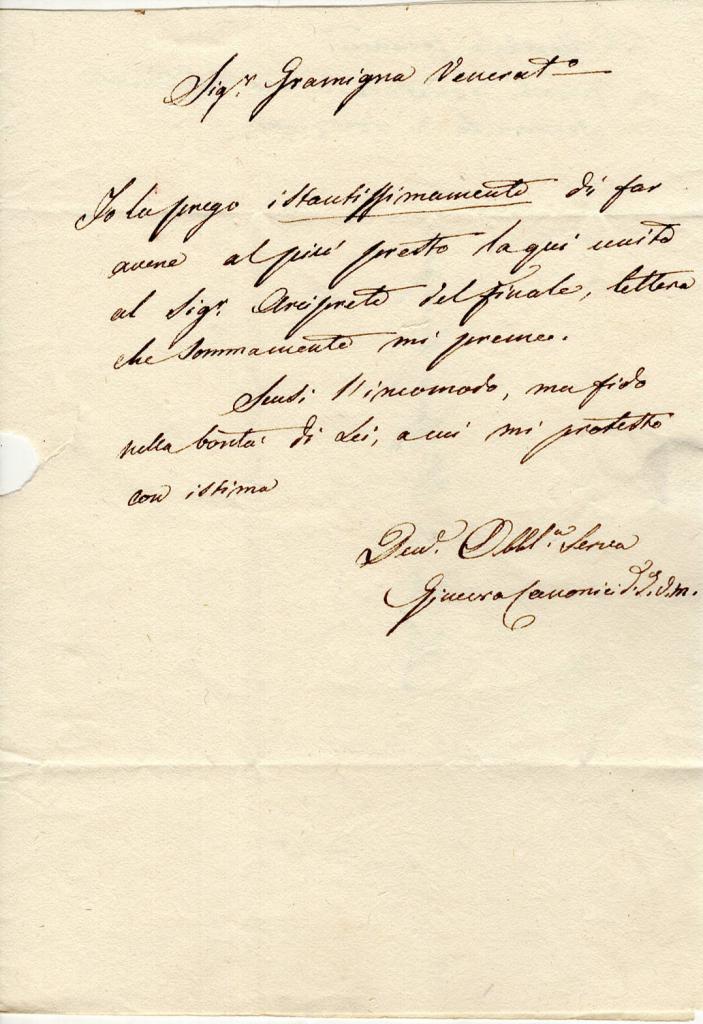 Sig.r Gramigna Venerat.o
Io la prego istantissimamente di far
avere al più presto la qui unita
al Sig.r Arciprete del finale, lettera
che sommamente mi preme.
Scusi l'incomodo, ma fido
nella bontà di Lei, a cui mi protesto
con istima
Dev.a Obbl.a Serva
Ginevra Canonici